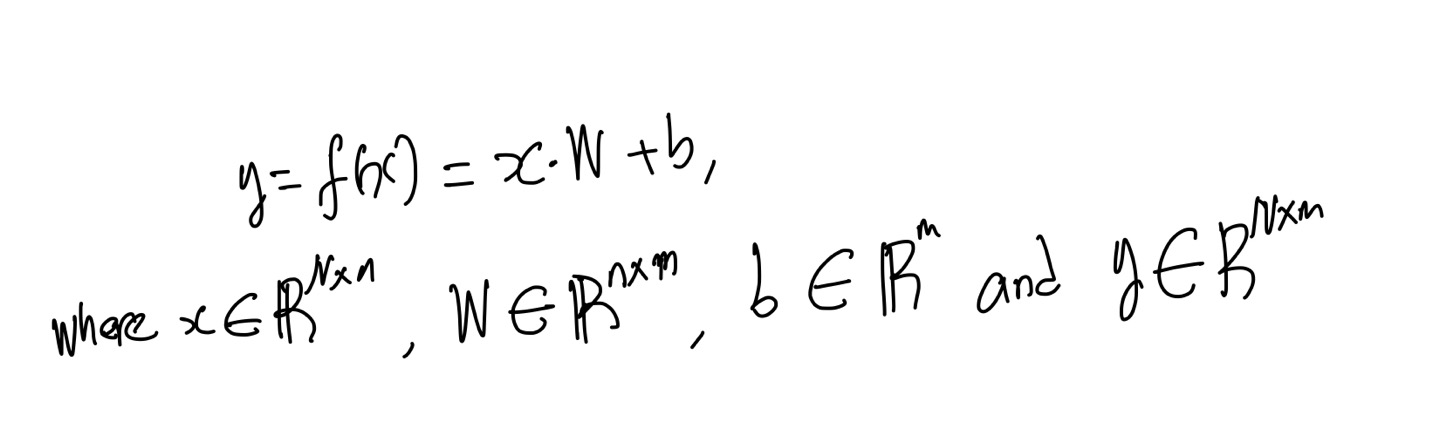 y = f(x) = x·W + b,
where x ∈ ℝ^{N×n}, W ∈ ℝ^{n×m}, b ∈ ℝ^m and y ∈ ℝ^{N×m}